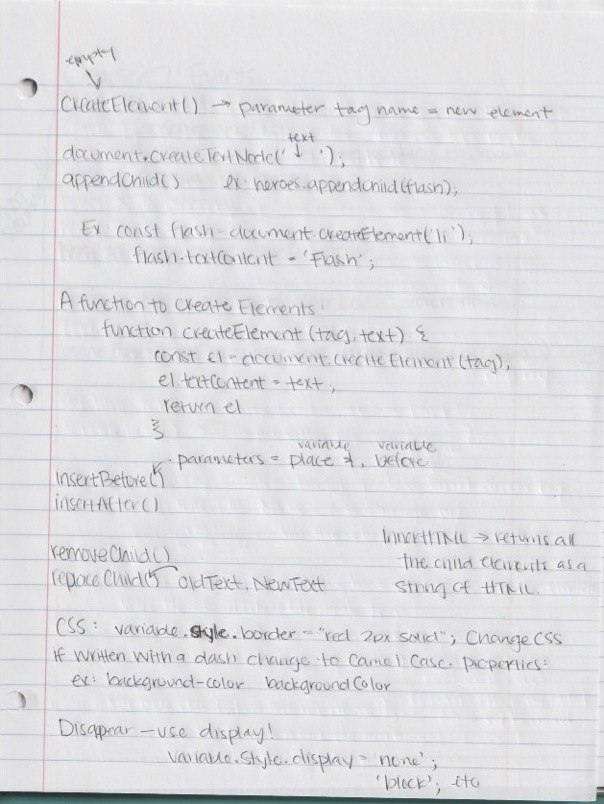 empty
CreateElement() → parameter tag name = new element
text
document.createTextNode(' ↓ ');
appendChild() ex: heroes.appendChild(flash);
Ex: const flash = document.createElement('li');
flash.textContent = 'Flash';
A function to create Elements:
function createElement(tag, text) {
const el = document.createElement(tag);
el.textContent = text;
return el
}
variable variable
parameters = place, before
insertBefore()
insertAfter()
innerHTML → returns all
removeChild() the child elements as a
replaceChild() oldText, NewText string of HTML.
CSS: variable.style.border = "red 2px solid"; Change CSS
If written with a dash change to Camel Case properties:
ex: background-color backgroundColor
Disappear - use display!
variable.style.display = 'none';
'block'; etc